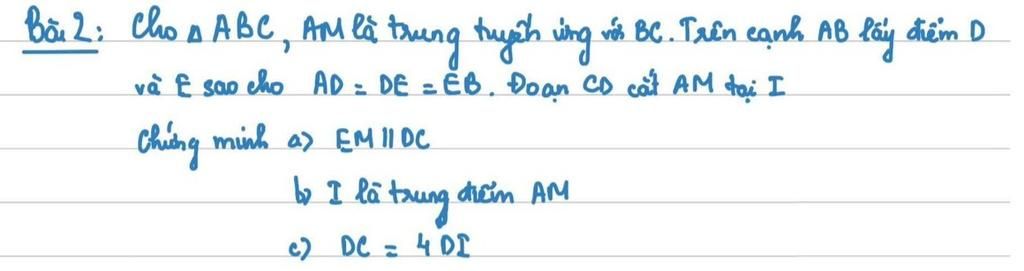 Bài 2: Cho △ ABC, AM là trung tuyến ứng với BC. Trên cạnh AB lấy điểm D
và E sao cho AD = DE = EB. Đoạn CD cắt AM tại I
Chứng minh a) EM || DC
b) I là trung điểm AM
c) DC = 4 DI